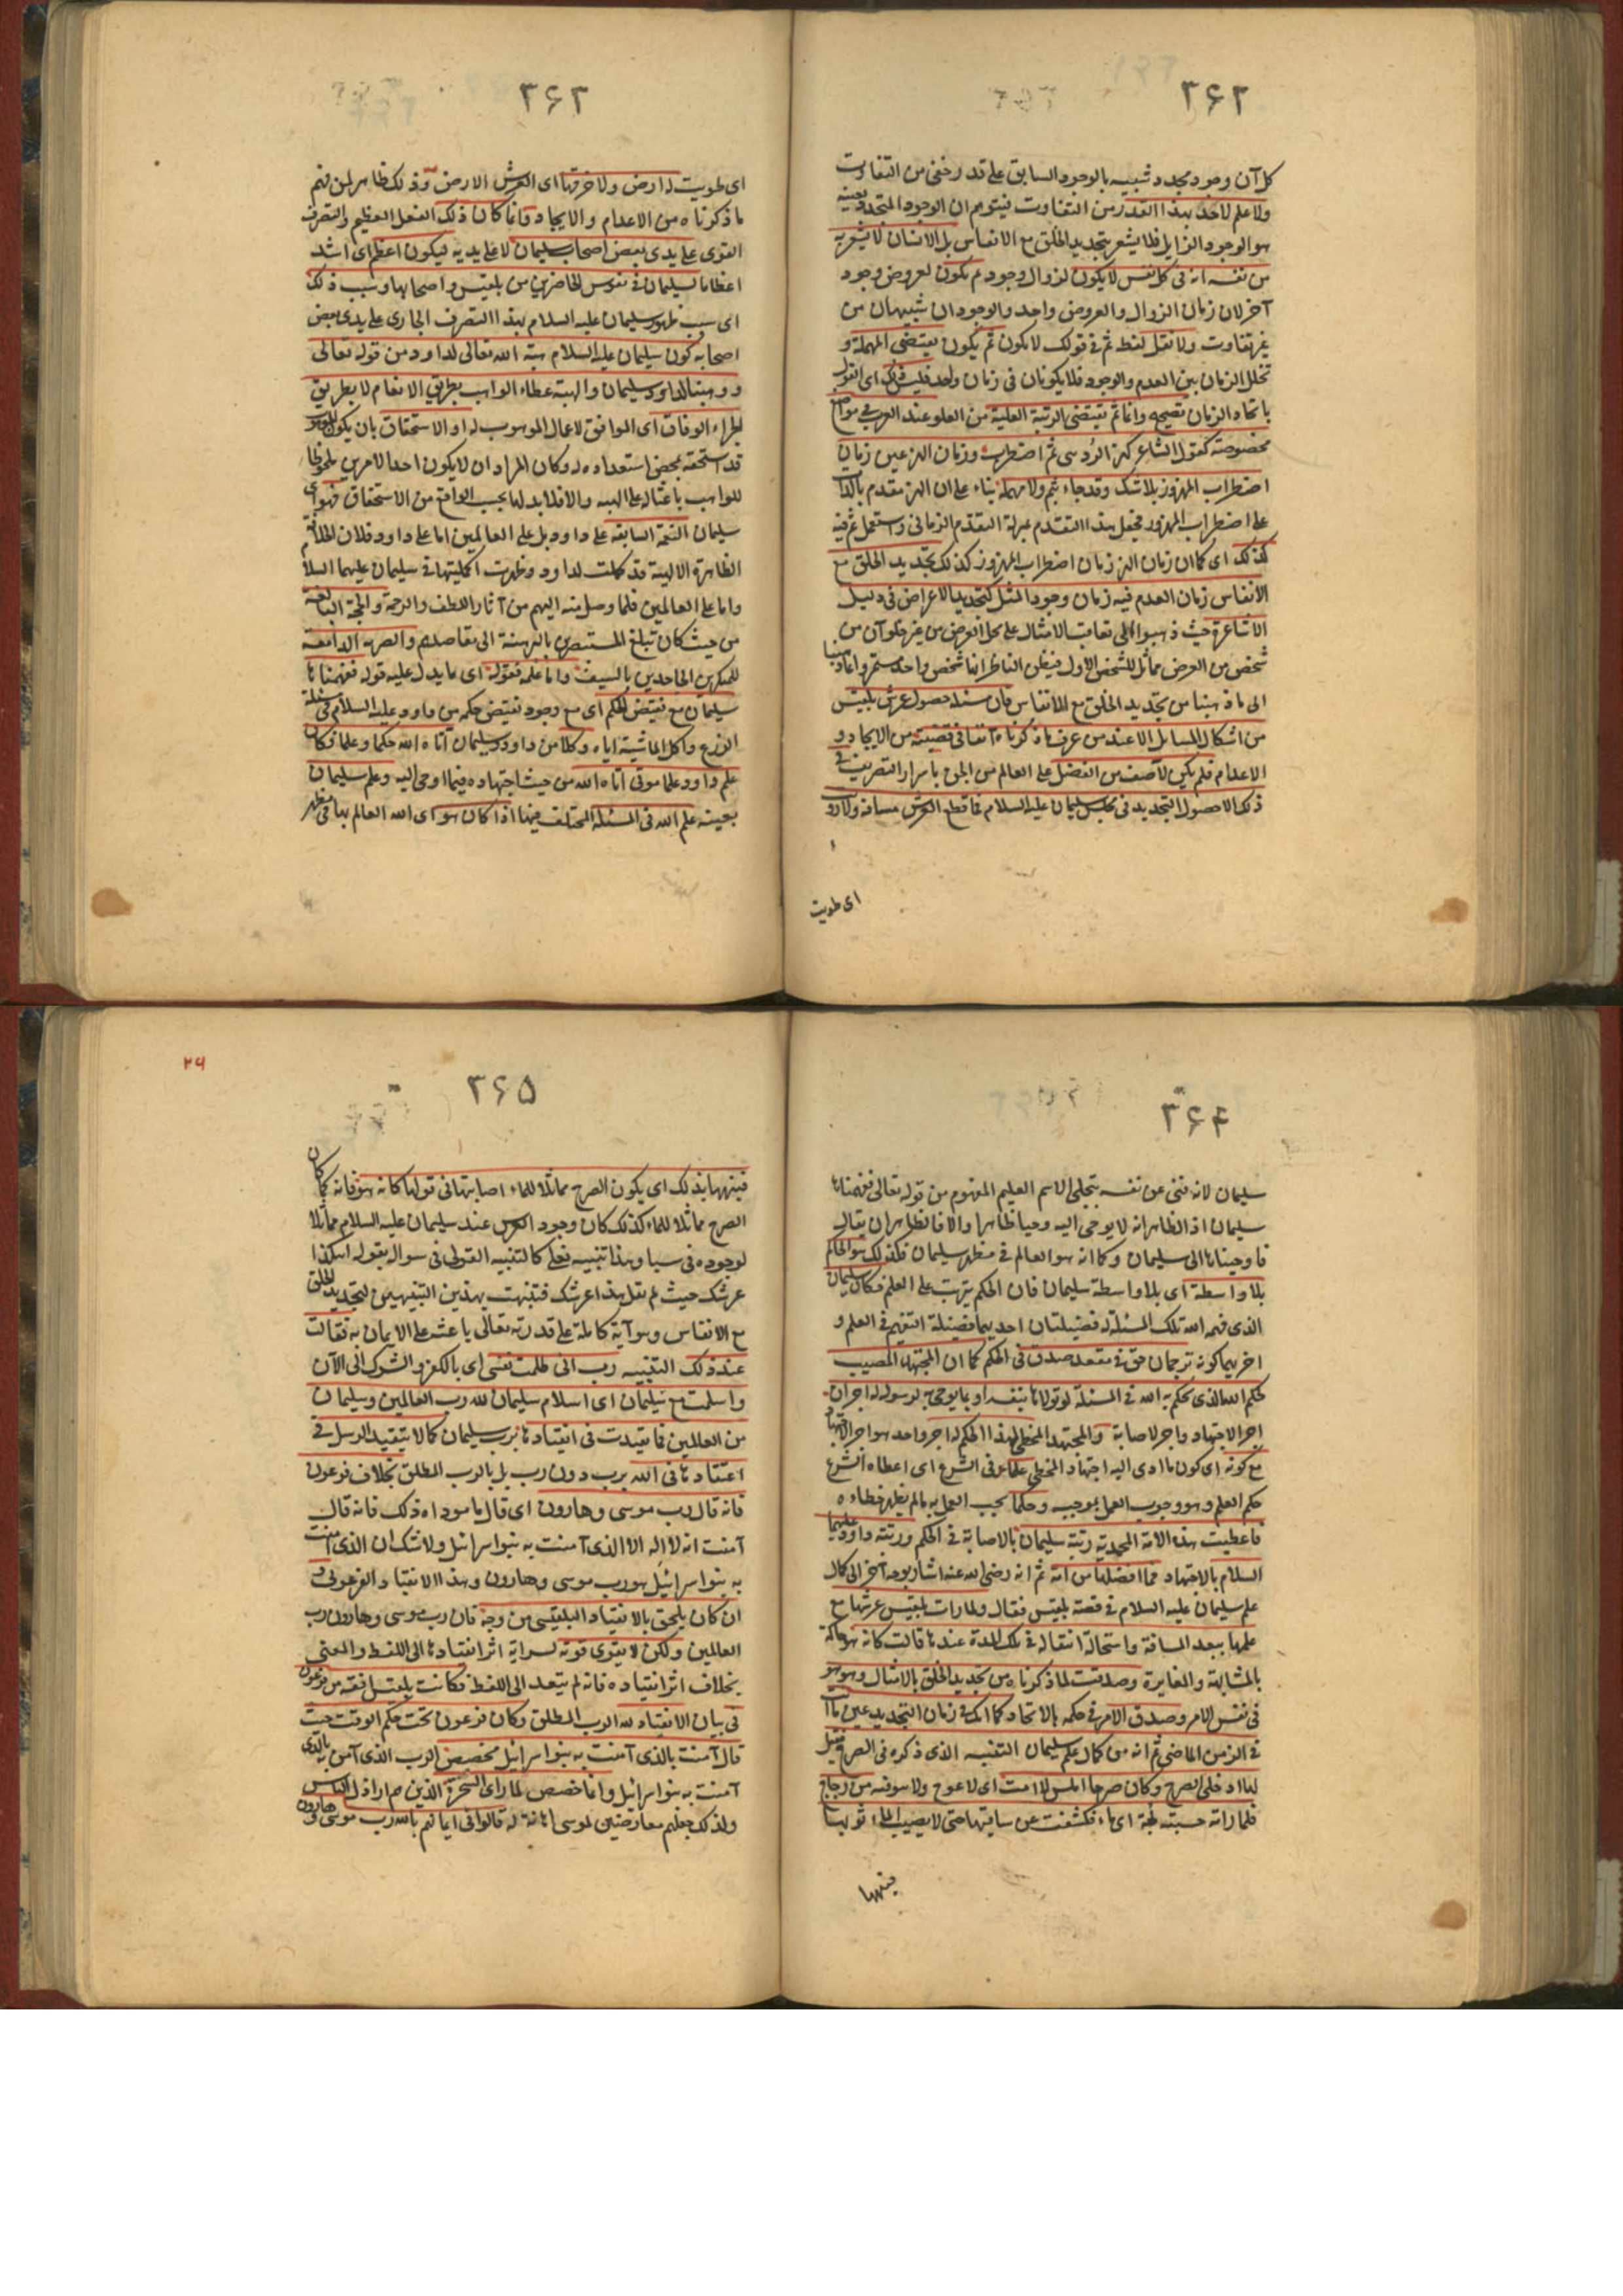 ۳۶۲
كل آن وجود مجدد شبيه بالوجود السابق على قدر خفى من التفاوت
ولا علم لاحد بهذا القدر من التفاوت فيتوهم ان الوجود المتجدد بعينه
هو الوجود الزايل فلا يشعر بتجديد الخلق مع الانفاس بل الانسان لا يشعر به
من نفسه انه فى كل نفس لا يكون لزوال وجود ثم يكون لعروض وجود
آخر لان زمان الزوال والعروض واحد والوجودان شبيهان من
غير تفاوت ولا تقل لفظ ثم فى قولك لا يكون ثم يكون يقتضى المهملة و
تخلل الزمان بين العدم والوجود فلا يكونان فى زمان واحد فليس ذلك اى القول
باتحاد الزمان بصحيح وانما ثم يقتضى الرتبة العلية من العلو عند العرب فى مواضع
مخصوصة كقول الشاعر كهز الردينى ثم اضطرب وزمان الهز عين زمان
اضطراب المهزوز بلا شك وقد جاء بثم ولا مهملة بناء على ان الهز مقدم بالذات
على اضطراب المهزوز فجعل هذا التقدم بمنزلة التقدم الزمانى واستعمل ثم فيه
كذلك اى كما ان زمان الهز زمان اضطراب المهزوز كذلك تجديد الخلق مع
الانفاس زمان العدم فيه زمان وجود المثل كتجديد الاعراض فى دليل
الاشاعرة حيث ذهبوا الى تعاقب الامثال على محل العرض من غير خلو آن من
شخص من العرض مماثل للشخص الاول فيظن الناظر انها شخص واحد مستمر وانما ذهبنا
الى ما ذهبنا من تجديد الخلق مع الانفاس فان مسئلة حصول عرش بلقيس
من اشكل المسائل الا عند من عرف ما ذكرناه آنفا فى قصته من الايجاد و
الاعدام فلم يكن لآصف من الفضل على العالم من الجن باسرار التصريف فى
ذلك الا حصول التجديد فى مجلس سليمان عليه السلام فما قطع العرش مسافة ولا زويت
اى طويت
۳۶۳
اى طويت له ارض ولا خرقها اى العرش الارض وذلك ظاهر لمن فهم
ما ذكرناه من الاعدام والايجاد وانما كان ذلك الفعل العظيم والتصرف
القوى على يدى بعض اصحاب سليمان لا على يديه ليكون اعظم اى اشد
اعظاما لسليمان فى نفوس الحاضرين من بلقيس واصحابها وسبب ذلك
اى سبب ظهور سليمان عليه السلام بهذا التصرف الجارى على يدى بعض
اصحابه كون سليمان عليه السلام هبة الله تعالى لداود من قوله تعالى
ووهبنا لداود سليمان والهبة عطاء الواهب بطريق الانعام لا بطريق
الجزاء الوفاق اى الموافق لاعمال الموهوب له او الاستحقاق بان يكون الموهوب
قد استحقه بمحض استعداده له وكان المراد ان لا يكون احد الامرين ملحوظا
للواهب باعثا له على الهبه والا فلا بد لها بحسب الواقع من الاستحقاق فهو اى
سليمان النعمة السابغه على داود بل على العالمين اما على داود فلان الخلافة
الظاهرة الالهية قد كملت لداود وظهرت اكمليتها فى سليمان عليهما السلام
واما على العالمين فلما وصل منه اليهم من آثار اللطف والرحمة والحجة البالغة
من حيث كان تبلغ المستبصرين بالبرهنة الى مقاصدهم والضربه الدامغة
للمنكرين الجاحدين بالسيف واما علمه فقوله اى ما يدل عليه قوله ففهمناها
سليمان مع نقيض الحكم اى مع وجود نقيض حكمه من داود عليه السلام فى مسئلة
الزرع واكل الماشية اياه وكلا من داود وسليمان آتاه الله حكما وعلما فكان
علم داود علما موتى آتاه الله من حيث اجتهاده فيما اوحى اليه وعلم سليمان
بعينه علم الله فى المسئلة المختلف فيها اذا كان هو اى الله العالم بها فى مظهر
۳۶۴
سليمان لانه فنى عن نفسه بتجلى الاسم العليم المفهوم من قوله تعالى ففهمناها
سليمان اذ الظاهر انه لا يوحى اليه وحيا ظاهرا والا فالظاهر ان يقال
فاوحيناها الى سليمان وكما انه هو العالم فى مظهر سليمان فكذلك هو الحاكم
بلا واسطة اى بلا واسطة سليمان فان الحكم يترتب على العلم فكان سليمان
الذى فهمه الله تلك المسئلة له فضيلتان احديهما فضيلة التفهم فى العلم و
اخريهما كونه ترجمان حق فى مقعد صدق فى الحكم كما ان المجتهد المصيب
لحكم الله الذى يحكم به الله فى المسئلة لو تولاها بنفسه او بما يوحى به لرسوله له اجران
اجر الاجتهاد واجر الاصابة والمجتهد المخطى لهذا الحكم له اجر واحد هو اجر الاجتهاد
مع كونه اى كون ما ادى اليه اجتهاد المخطى علما فى الشرع اى اعطاه الشرع
حكم العلم وهو وجوب العمل بموجبه وحكما يجب العمل به ما لم يظهر خطاءه
فاعطيت هذه الامة المحمدية رتبة سليمان بالاصابة فى الحكم ورتبة داود عليهما
السلام بالاجتهاد فما افضلها من امة ثم انه رضى الله عنه اشار بوجه آخر الى كمال
علم سليمان عليه السلام فى قصة بلقيس فقال ولما رات بلقيس عرشها مع
علمها ببعد المسافة واستحالة انتقاله فى تلك المدة عندها قالت كانه هو حاكمة
بالمشابهة والمغايرة وصدقت لما ذكرناه من تجديد الخلق بالامثال وهو هو
فى نفس الامر وصدق الامر فى حكمه بالاتحاد كما انك فى زمان التجديد عين ما انت
فى الزمن الماضى ثم انه من كمال علم سليمان التنبيه الذى ذكره فى الصرح فقيل
لها ادخلى الصرح وكان صرحا املس لا امت اى لا عوج ولا سوفه من زجاج
فلما راته حسبته لجة اى ماء فكشفت عن ساقيها حتى لا يصيب الماء ثوبها
فنبهها
۲۶
۳۶۵
فنبهها بذلك اى يكون الصرح مماثلا للماء اصابتها فى قولها كانه هو فانه كما كان
الصرح مماثلا للماء كذلك كان وجود العرش عند سليمان عليه السلام مماثلا
لوجوده فى سبا وهذا تنبيه فعلى كالتنبيه القولى فى سواله بقوله اهكذا
عرشك حيث لم يقل هذا عرشك فتنبهت بهذين التنبيهين لتجديد الخلق
مع الانفاس وهو آية كاملة على قدرته تعالى باعثة على الايمان به فقالت
عند ذلك التنبيه رب انى ظلمت نفسى اى بالكفر والشرك الى الآن
واسلمت مع سليمان اى اسلام سليمان لله رب العالمين وسليمان
من العالمين فما تقيدت فى انقيادها برب سليمان كما لا يتقيد الرسل فى
اعتقادها فى الله برب دون رب بل بالرب المطلق بخلاف فرعون
فانه قال رب موسى وهارون اى قال ما موداه ذلك فانه قال
آمنت انه لا اله الا الذى آمنت به بنو اسرائيل ولا شك ان الذى آمنت
به بنو اسرائيل هو رب موسى وهارون وهذا الانقياد الفرعونى و
ان كان يلحق بالانقياد البلقيسى من وجه فان رب موسى وهارون رب
العالمين ولكن لا يقوى قوته لسراية اثر انقيادها الى اللفظ والمعنى
بخلاف اثر انقياده فانه لم يتعد الى اللفظ فكانت بلقيس افقه من فرعون
فى بيان الانقياد لله الرب المطلق وكان فرعون تحت حكم الوقت حيث
قال آمنت بالذى آمنت به بنو اسرائيل فخصص الرب الذى آمن به بالذى
آمنت به بنو اسرائيل وانما خصص لما راى السحرة الذين هم اراذل الناس
ولذلك جعلهم معارضين لموسى اهانة له قالوا فى ايمانهم بالله رب موسى وهارون